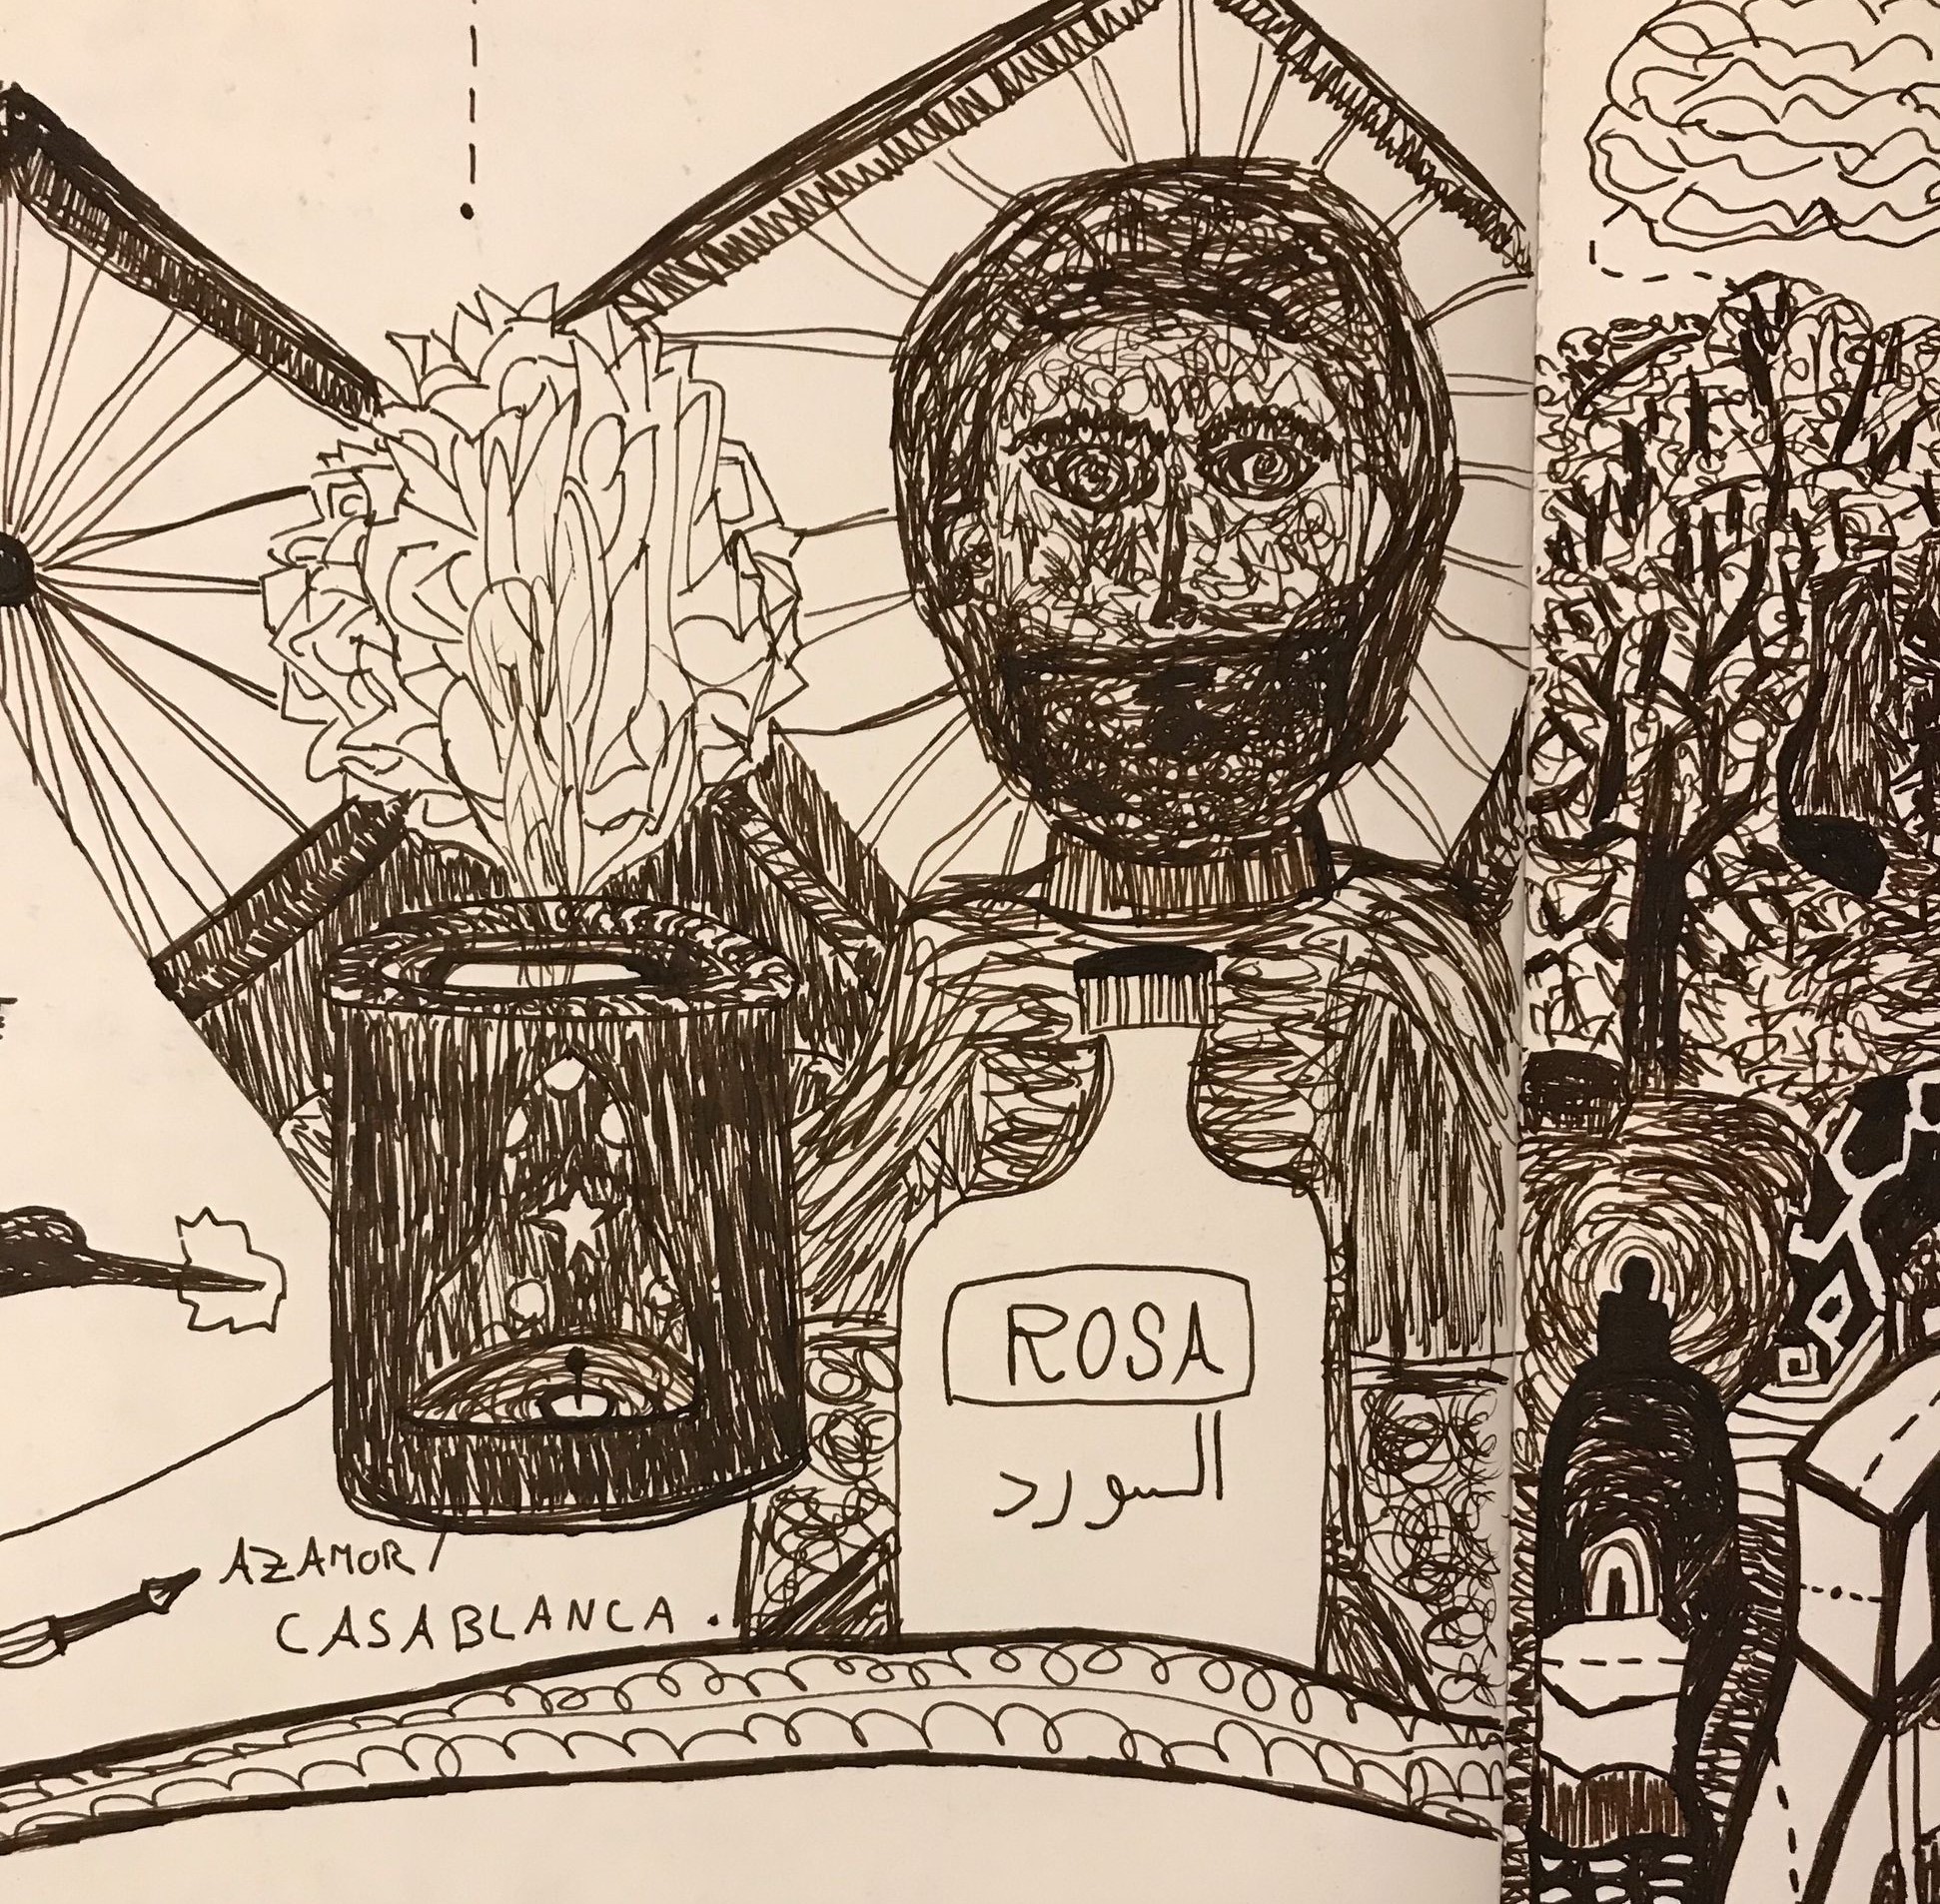 ROSA
السورد
AZAMOR /
CASABLANCA .